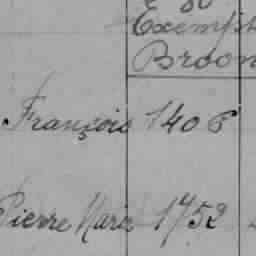 Exempt
Broon
François 1408
Pierre Marie 1752